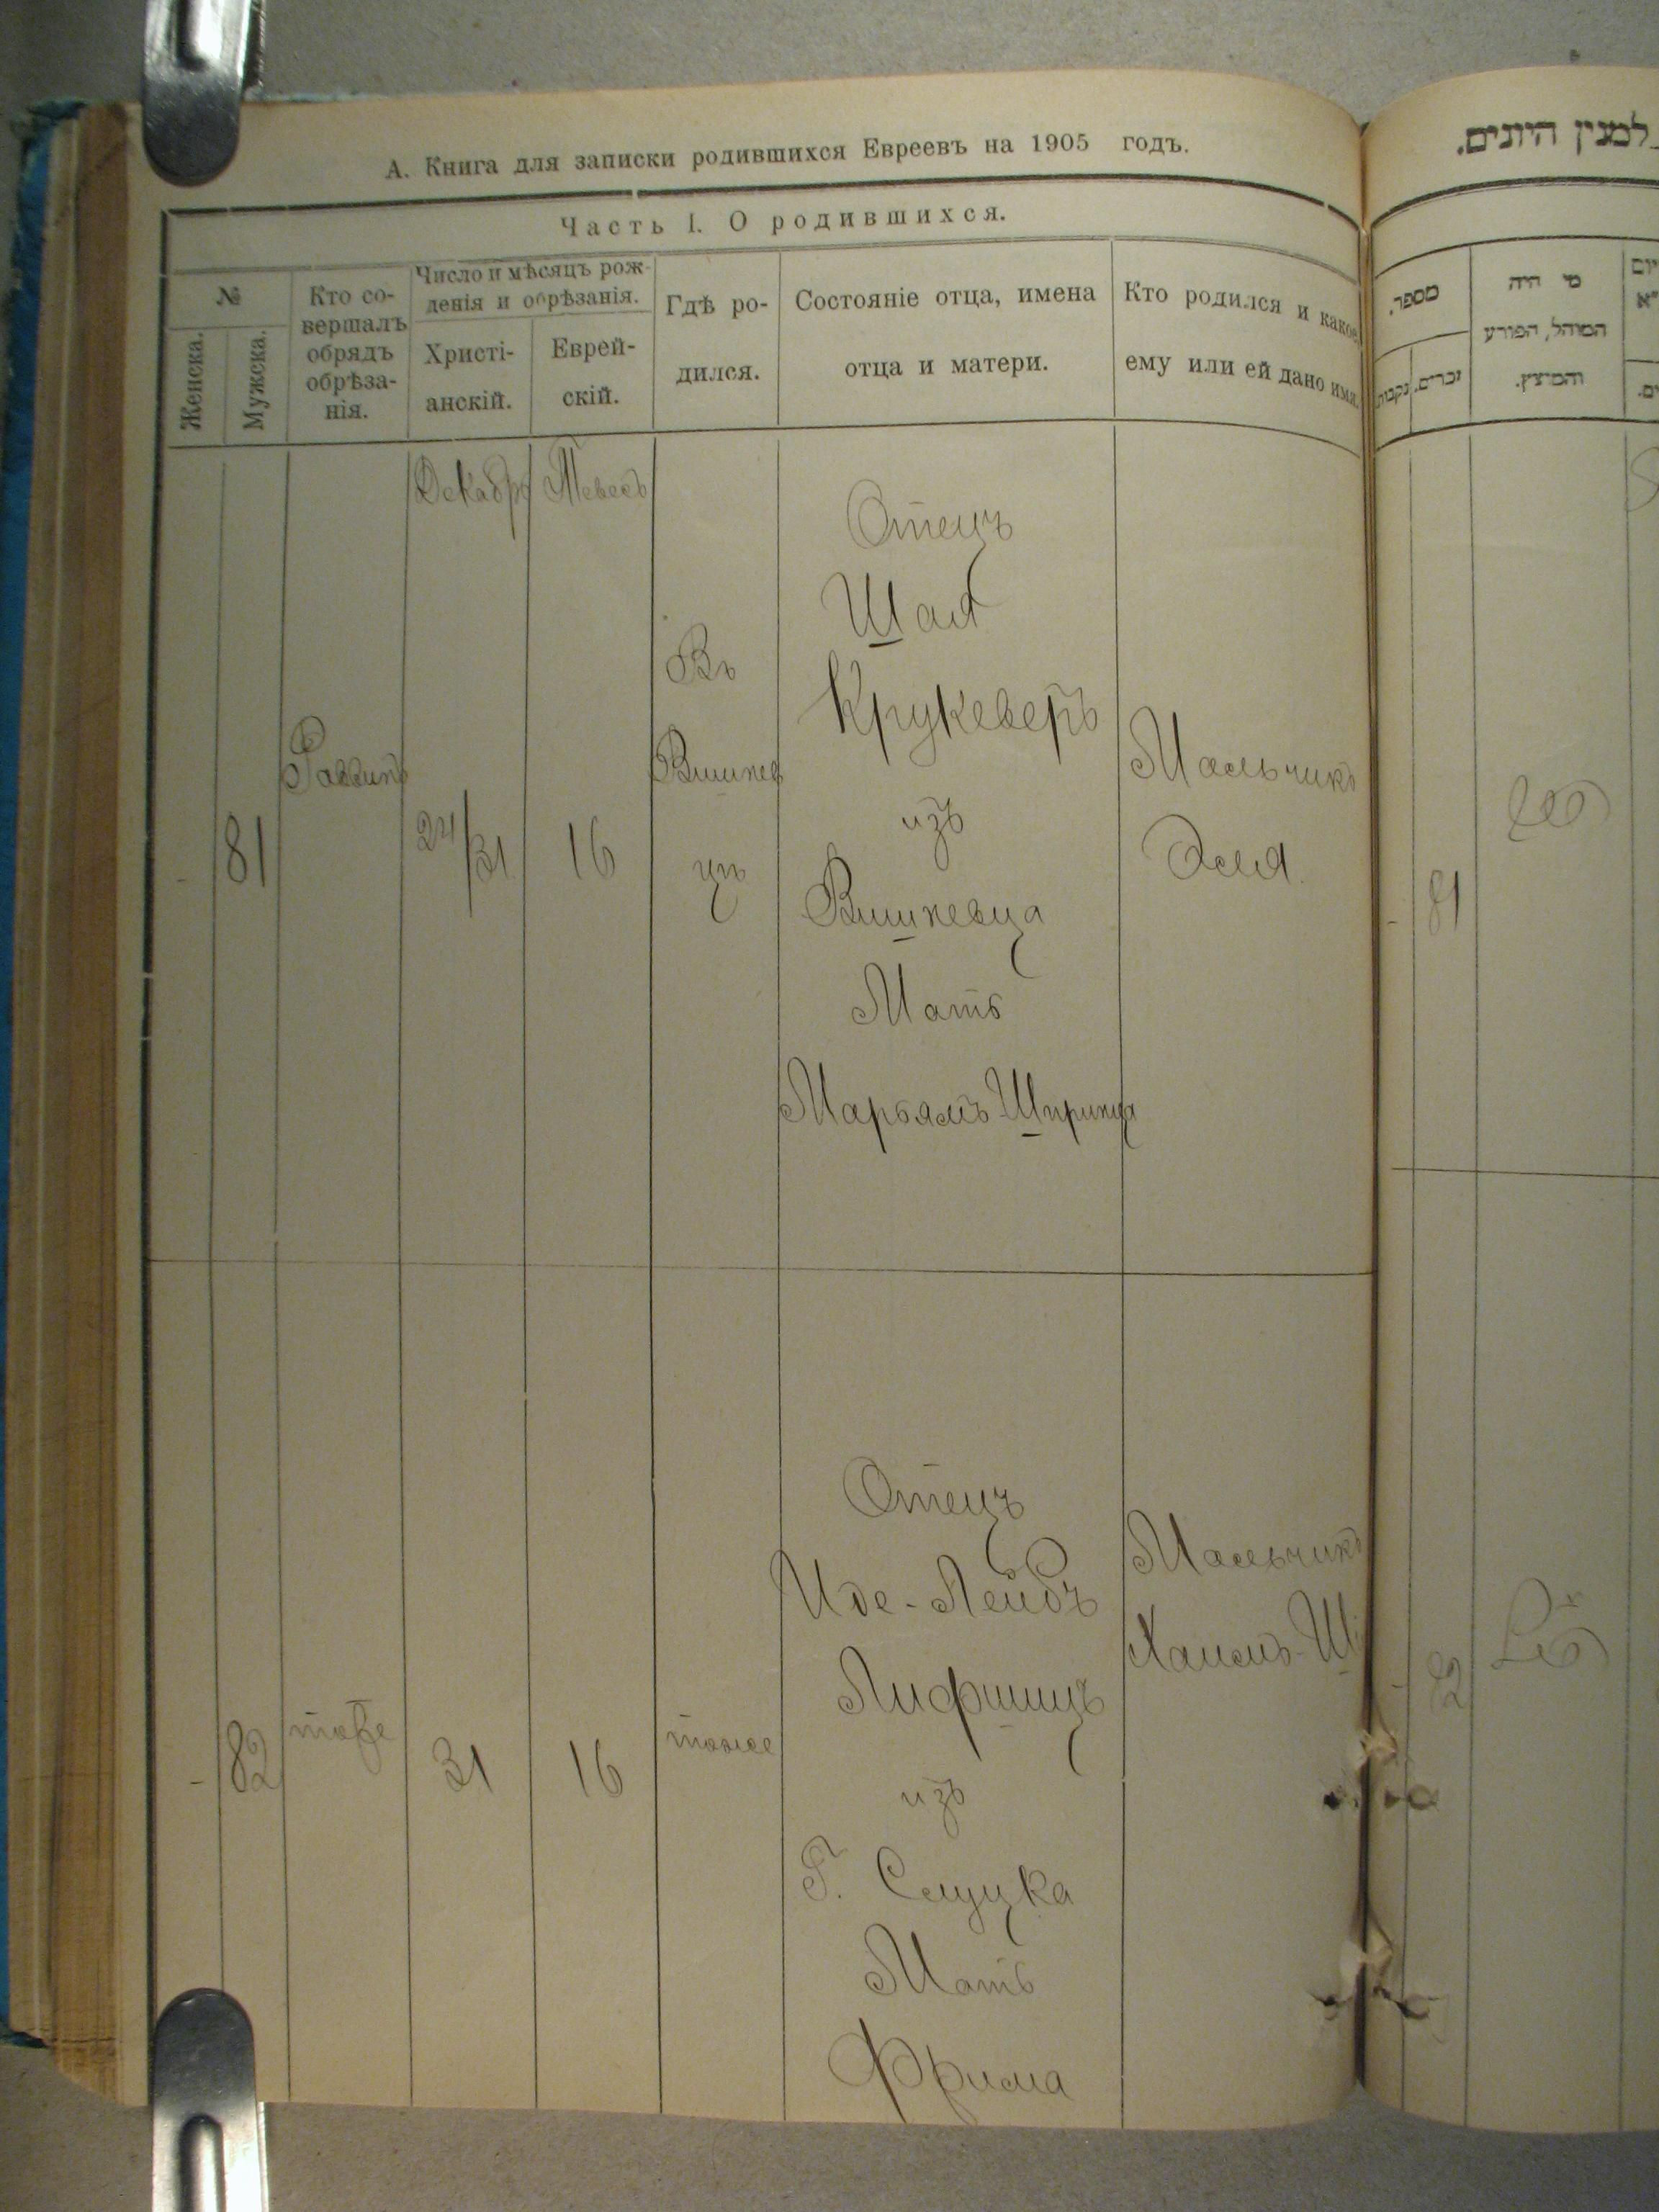 А. Книга для записки родившихся Евреевъ на 1905 годъ.
Часть I. О родившихся.
№
Женска.
Мужска.
Кто со-
вершалъ
обрядъ
обрѣза-
нія.
Число и мѣсяцъ рож-
денія и обрѣзанія.
Христі-
анскій.
Еврей-
скій.
Гдѣ ро-
дился.
Состояніе отца, имена
отца и матери.
Кто родился и какое
ему или ей дано имя.
-
81
Раввинъ
Декабрь
24/31
Тевесъ
16
Въ
Вишнев
цѣ
Отецъ
Шая
Крукеверъ
изъ
Вишневца
Мать
Марьямъ Шпринца
Мальчикъ
Эля.
-
82
тоже
31
16
тоже
Отецъ
Иде-Лейбъ
Лифшицъ
изъ
Г. Слуцка
Мать
Фрима
Мальчикъ
Хаимъ-Ш
למנין היונים.
מספר.
זכרים.
נקבות
מי היה
המוהל, הפורע
והמוצץ.
יום
-
81
-
82